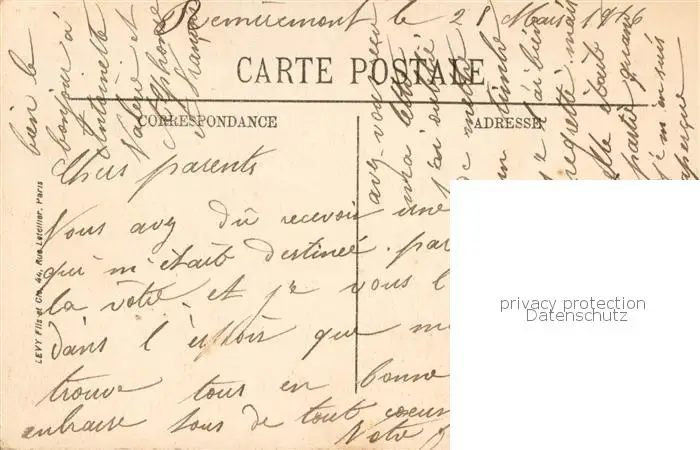 Remiremont le 28 Mars 1916
CARTE POSTALE
CORRESPONDANCE
ADRESSE
Chers parents
Vous avez dû recevoir une
qui m'était destinée. par
la vôtre et je vous l
dans l'espoir que m
trouve tous en bonne
embrasse tous de tout coeur
Votre
bien le
bonjour à
Antoinette
Valérie et
Alphonse
et François
avez-vous
ma lettre
j'ai oublié
de mettre
un timbre
regretté mais
elle était
partie quand
je m'en suis
LEVY Fils et Cie, 44, Rue Letellier, Paris
privacy protection
Datenschutz